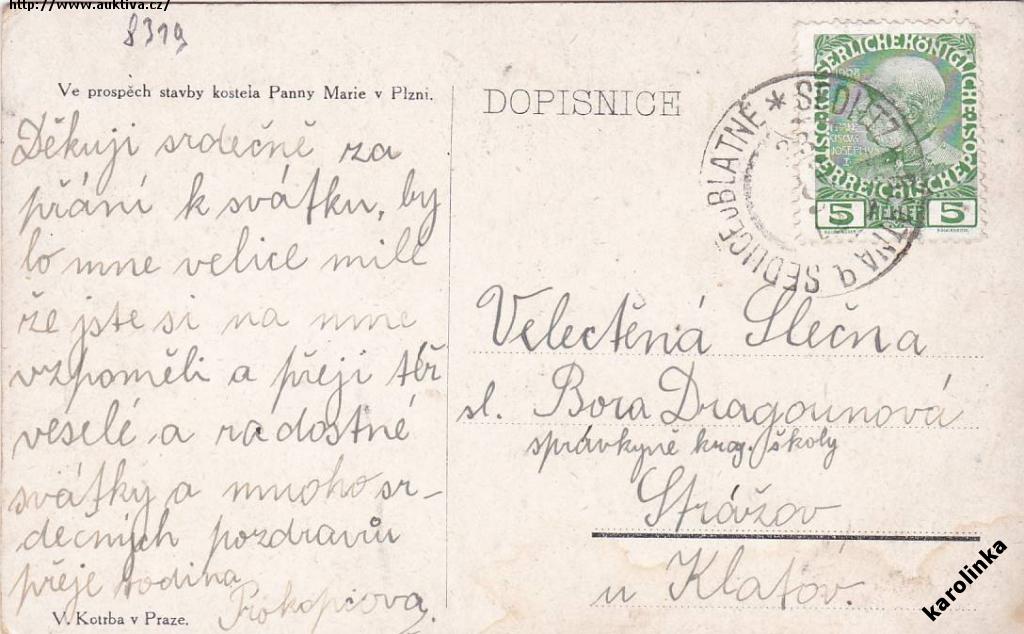 http://www.auktiva.cz/
8319
Ve prospěch stavby kostela Panny Marie v Plzni.
DOPISNICE
Děkuji srdečně za
přání k svátku, by
lo mne velice milé
že jste si na mne
vzpoměli a přeji též
veselé a radostné
svátky a mnoho sr-
dečných pozdravů
přeje rodina
Prokopcova.
V. Kotrba v Praze.
SEDLICE U BLATNÉ *
5 HELLER 5
Velectěná Slečna
sl. Bora Dragounová
správkyně kraj. školy
Strážov
u Klatov.
karolinka